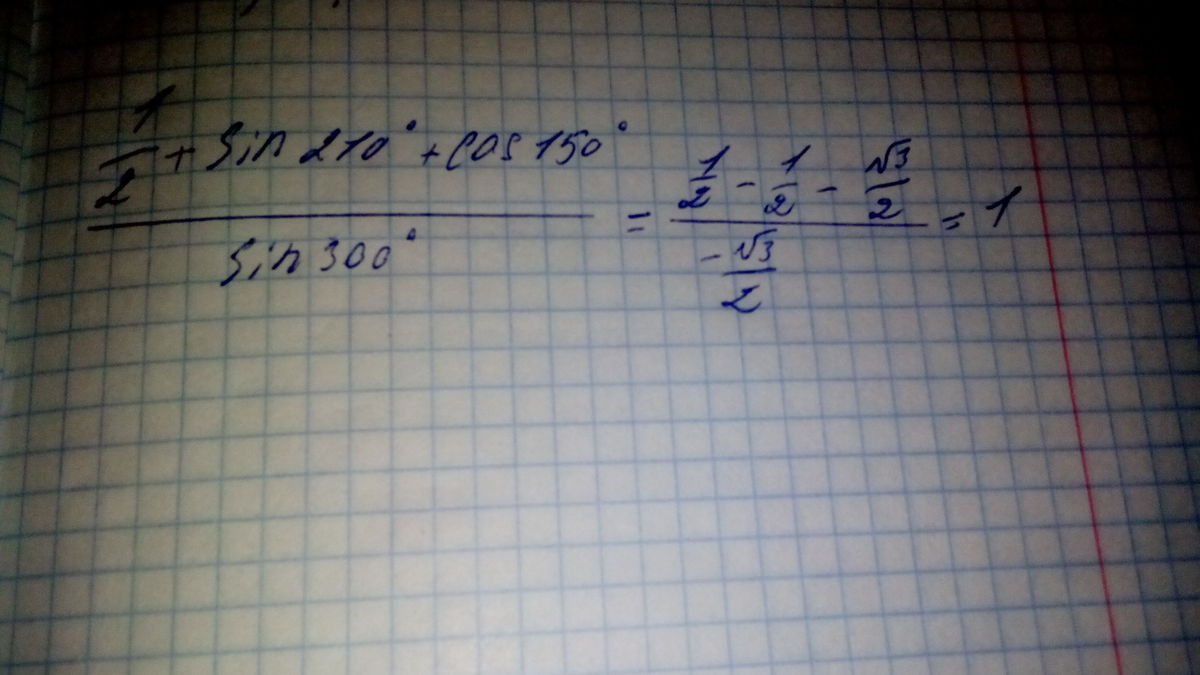 \frac{\frac{1}{2} + sin 210° + cos 150°}{sin 300°} = \frac{\frac{1}{2} - \frac{1}{2} - \frac{√3}{2}}{\frac{-√3}{2}} = 1